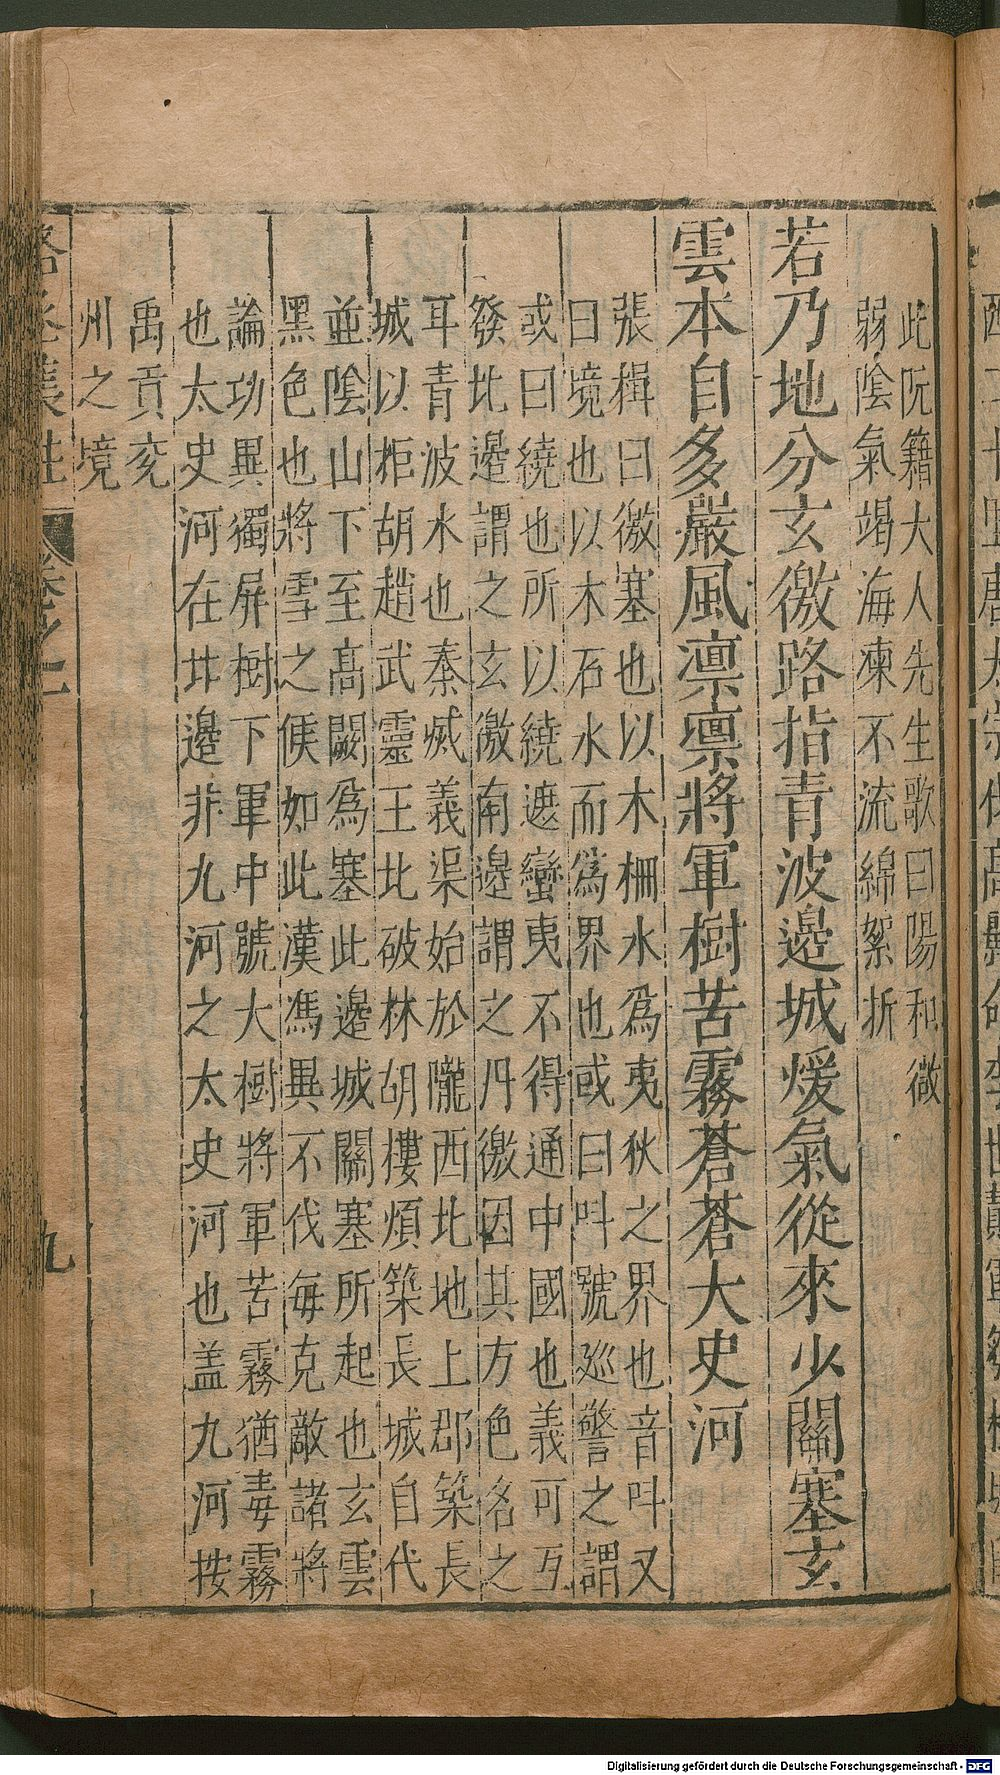 此阮籍大人先生歌曰陽和微
弱陰氣竭海凍不流綿絮折
若乃地分玄徼路指青波邉城煖氣從來少關塞玄
雲本自多嚴風凛凛將軍樹苦霧蒼蒼大史河
張楫曰徼塞也以木柵水爲夷狄之界也音呌又
曰境也以木石水而爲界也或曰呌號廵警之謂
或曰繞也所以繞遮蠻夷不得通中國也義可互
發北邉謂之玄徼南邉謂之丹徼因其方色名之
耳青波水也秦烕義渠始於隴西北地上郡築長
城以柜胡趙武靈王北破林胡樓煩築長城自代
並陰山下至髙闕爲塞此邉城關塞所起也玄雲
黑色也將雪之候如此漢馮異不伐每克敵諸將
論功異獨屏樹下軍中號大樹將軍苦霧猶毒霧
也太史河在北邉非九河之太史河也盖九河按
禹貢兖
州之境
駱丞集註 卷之一
九
Digitalisierung gefördert durch die Deutsche Forschungsgemeinschaft - DFG